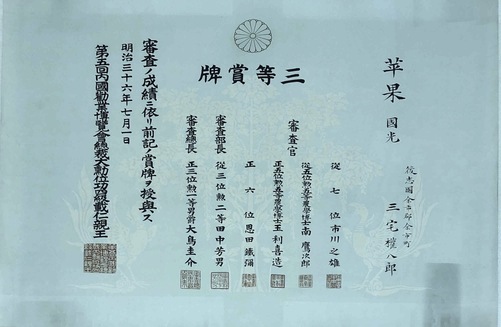 三等賞牌
苹果 國光
後志國余市郡余市町
三宅權八郎
審査官
從七位市川之雄
從五位勲五等農學博士南鷹次郎
正五位勲五等農學博士玉利喜造
正六位恩田鐵彌
審査部長 從三位勲二等田中芳男
審査總長 正三位勲一等男爵大鳥圭介
審査ノ成績ニ依リ前記ノ賞牌ヲ授與ス
明治三十六年七月一日
第五回内國勸業博覽會總裁大勲位功四級載仁親王